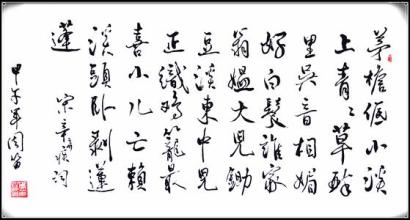 茅檐低小溪
上青々草醉
里吳音相媚
好白髮誰家
翁媼大兒鋤
豆溪東中兒
正織鷄籠最
喜小儿亡賴
溪頭卧剝蓮
蓬
宋辛棄疾詞
甲午年